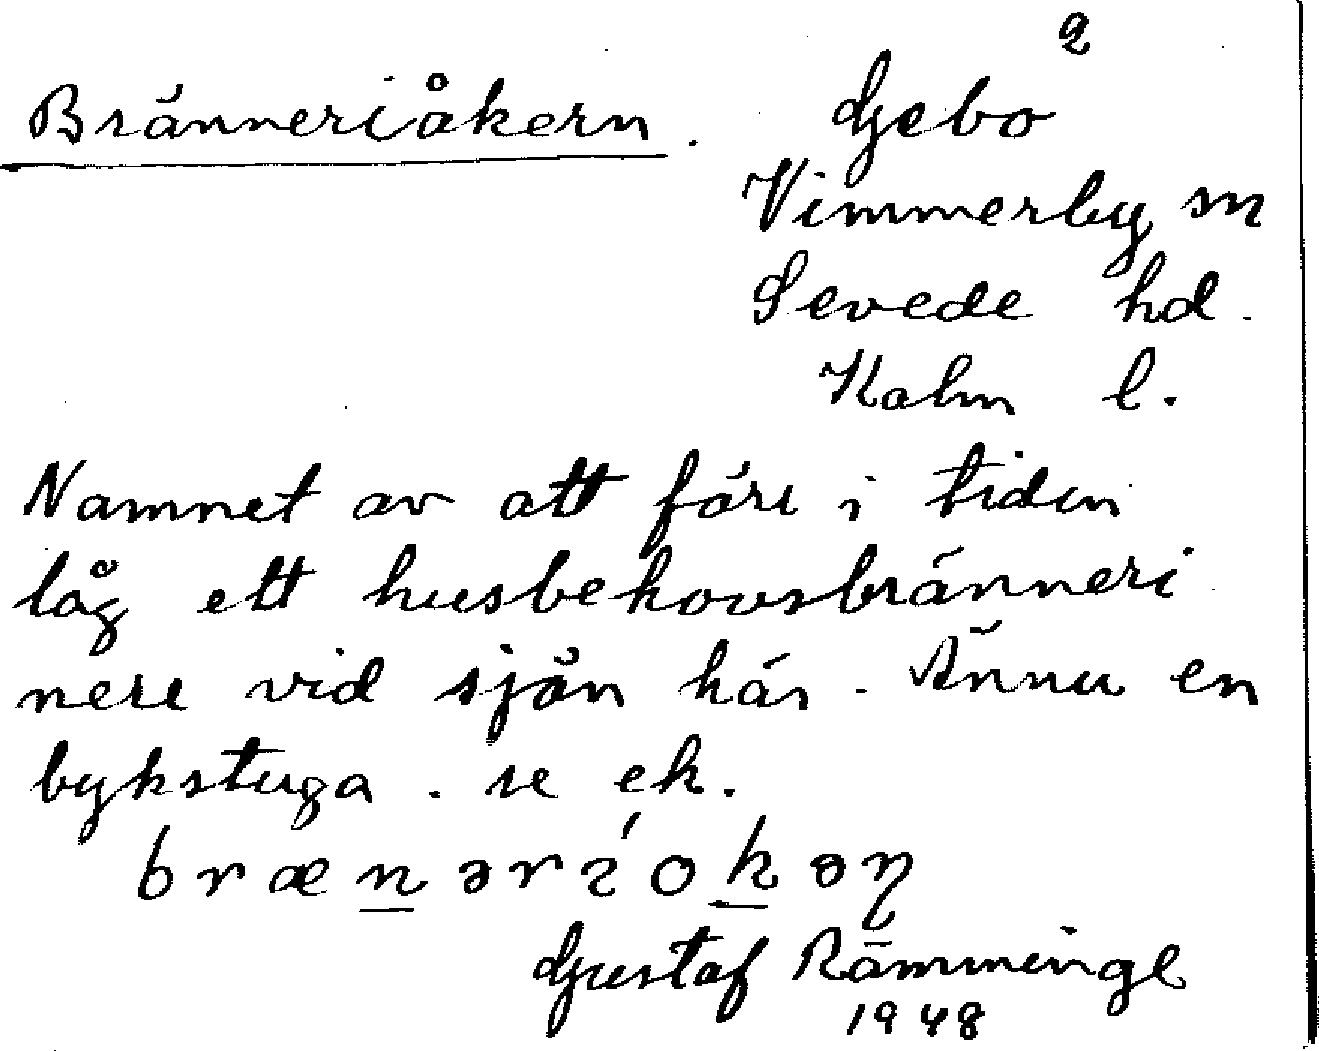 2
Bränneriåkern. Gebo
Vimmerby sn
Sevede hd.
Kalm l.
Namnet av att förr i tiden
låg ett husbehovsbränneri
nere vid sjön här. Ännu en
bykstuga. se ek.
brænərıókəɳ
Gustaf Rämminge
1948